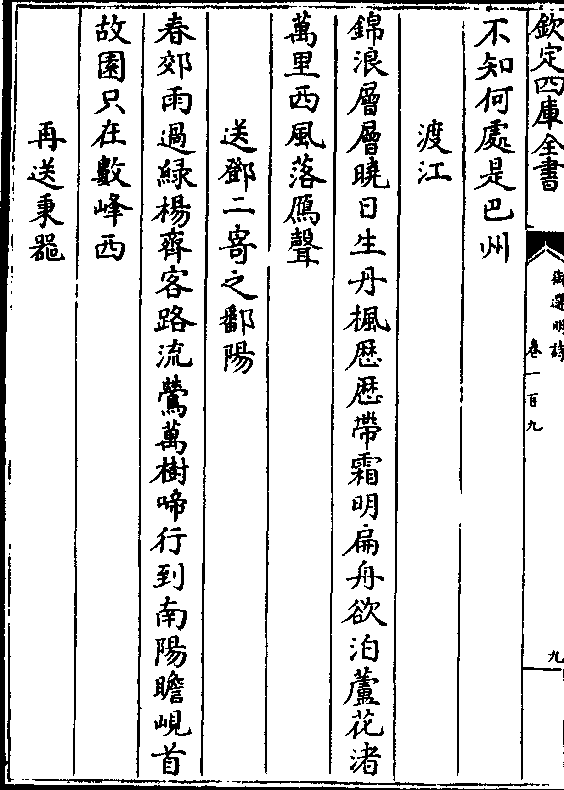 欽定四庫全書
御選明詩
卷一百九
九
不知何處是巴州
渡江
錦浪層層曉日生丹楓歴歴帶霜明扁舟欲泊蘆花渚
萬里西風落鴈聲
送鄧二寄之鄱陽
春郊雨過緑楊齊客路流鶯萬樹啼行到南陽瞻峴首
故園只在數峰西
再送秉器